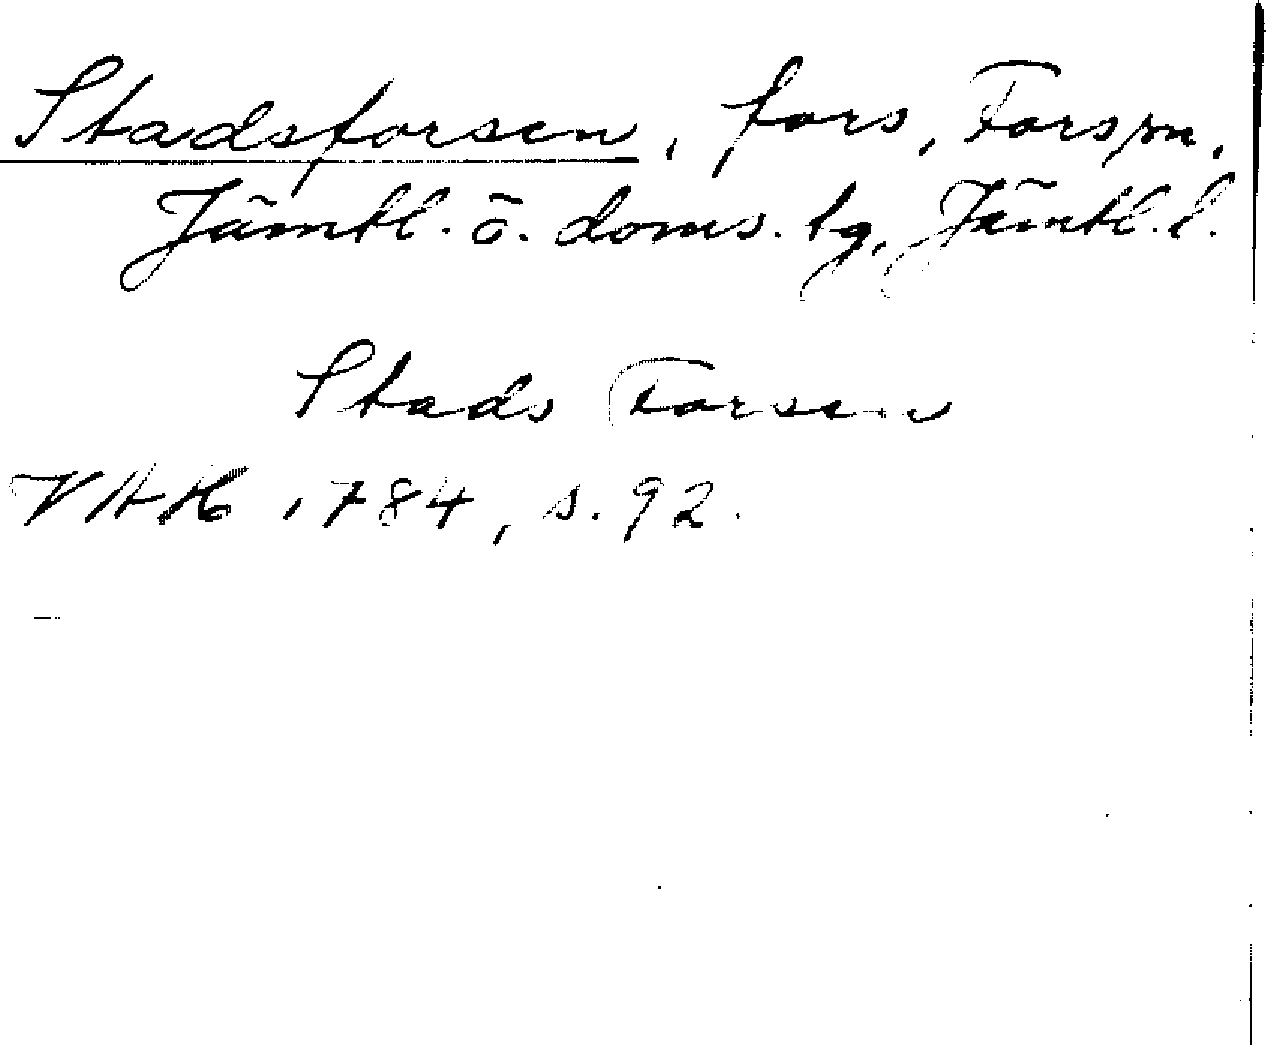 Stadsforsen, fors, Fors sn,
Jämtl. ö. doms. tg, Jämtl. l.
Stads Forsen
VAH 1784, s. 92.